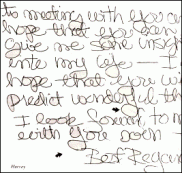 to meeting with you and
hope that you can
give me some insight
into my life - I
hope that you will
predict wonderful thi
I look forward to m
with you soon -
Best Regar